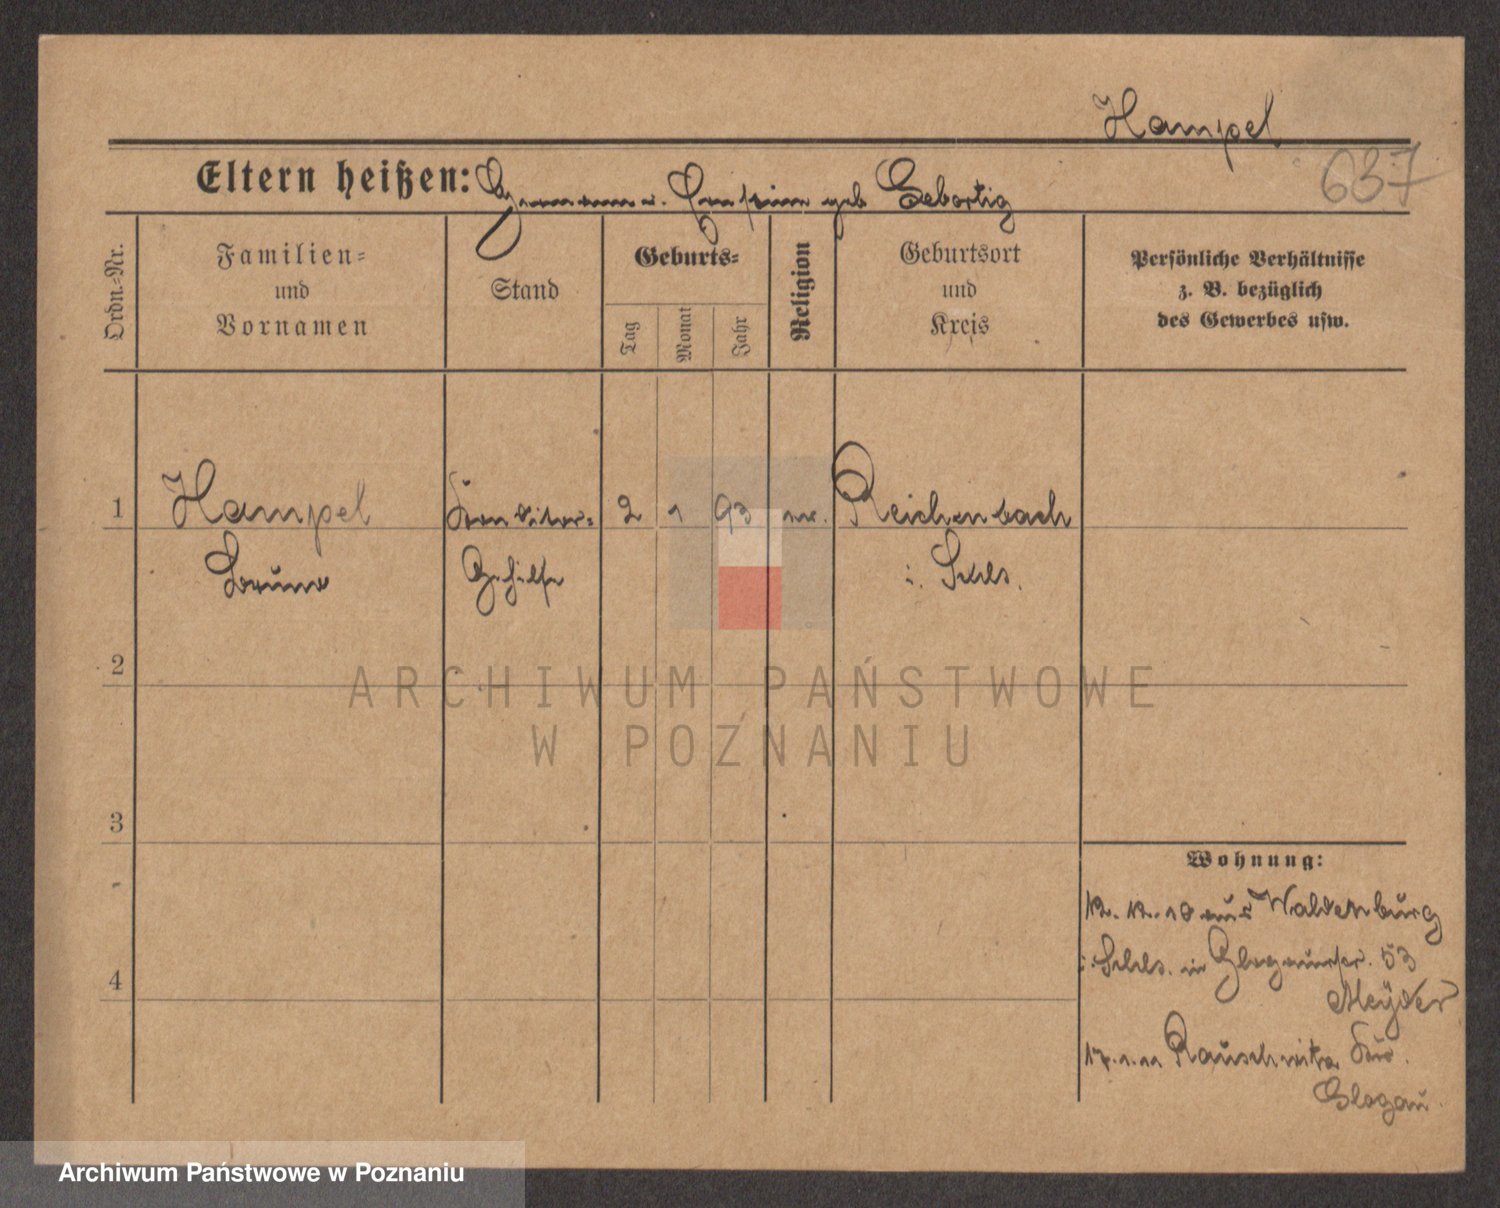 Hampel
637
Eltern heißen: Hermann u. geb Gebortig
Ordn.-Nr.
Familien-
und
Vornamen
Stand
Geburts-
Tag
Monat
Jahr
Religion
Geburtsort
und
Kreis
Persönliche Verhältnisse
z. B. bezüglich
des Gewerbes usw.
1
Hampel
Konditor-
2
1
93
Reichenbach
Bruno
Gehilfe
i. Schls.
2
3
4
ARCHIWUM PAŃSTWOWE
W POZNANIU
Wohnung:
12. 12. 10 aus Waldenburg
i. Schls. in 53
Meyder
17.1.11 Rauschwitz Krs.
Glogau.
Archiwum Państwowe w Poznaniu